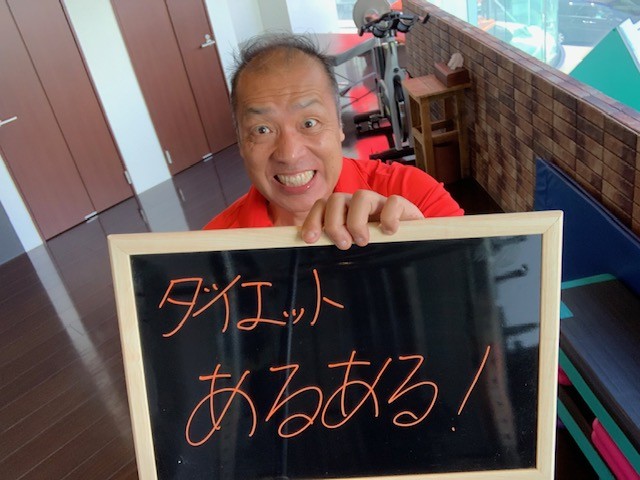 ダイエット
あるある!